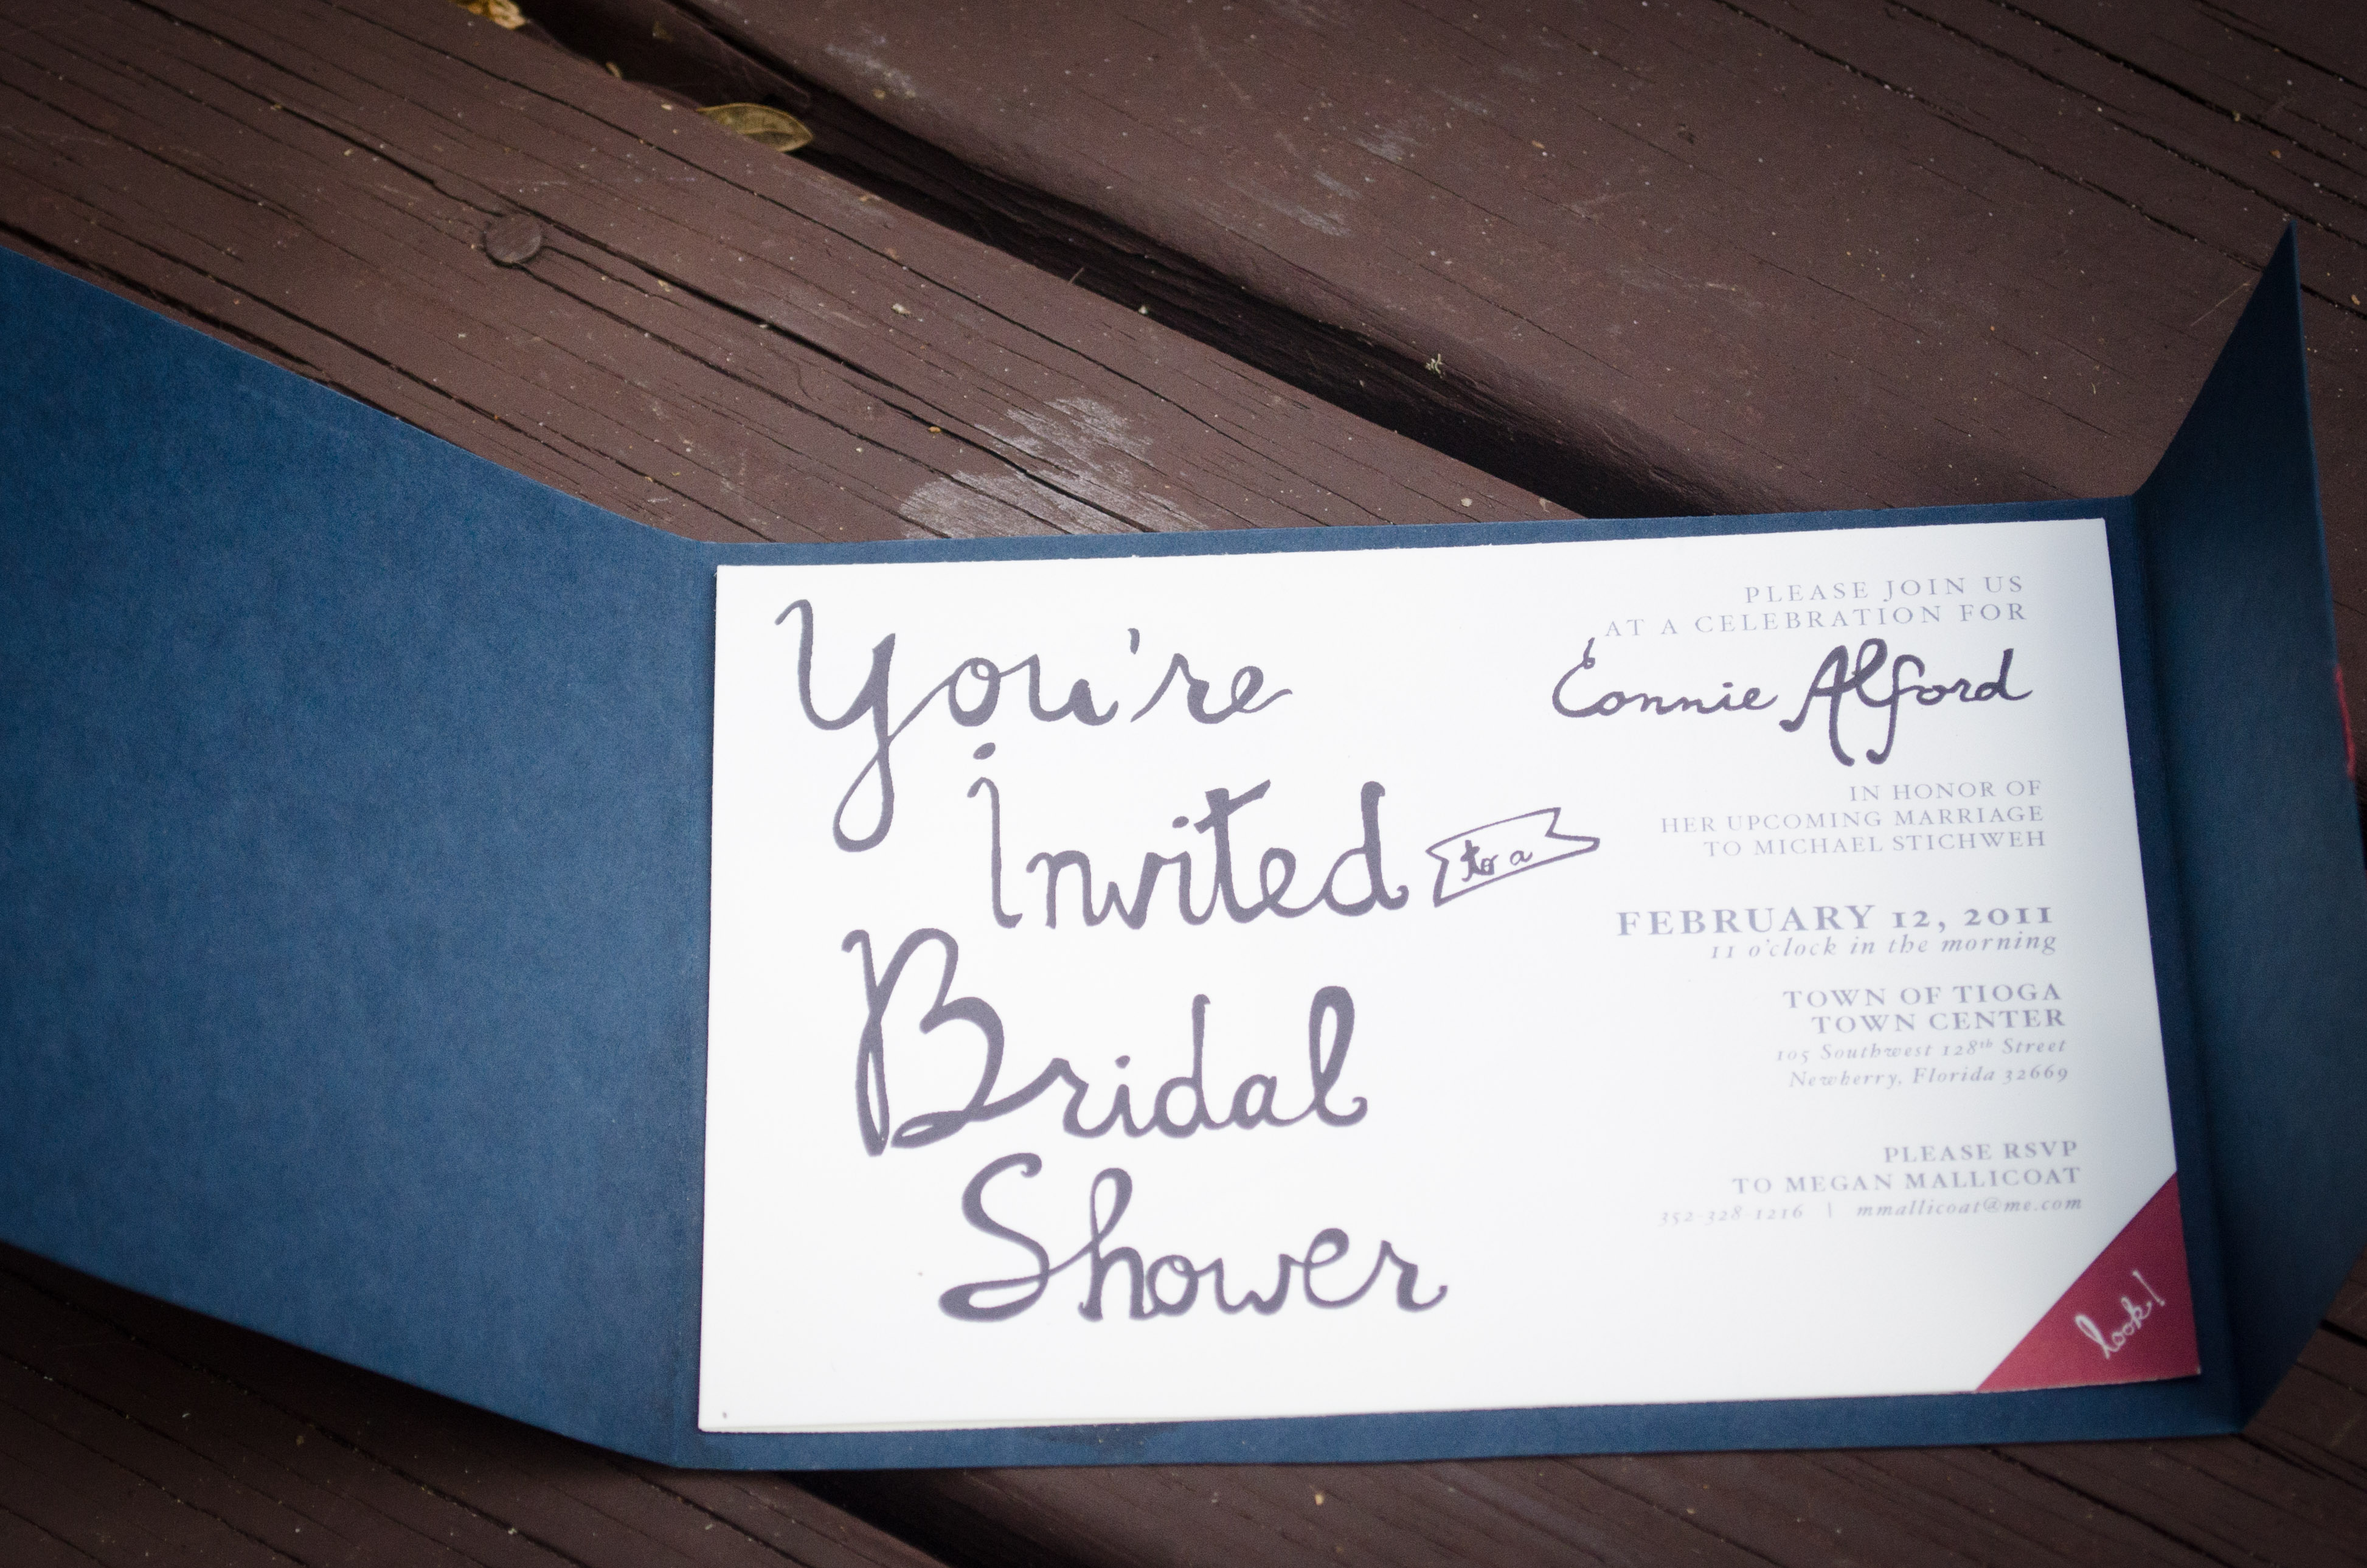 You're
Invited to a
Bridal
Shower
PLEASE JOIN US
AT A CELEBRATION FOR
Connie Alford
IN HONOR OF
HER UPCOMING MARRIAGE
TO MICHAEL STICHWEH
FEBRUARY 12, 2011
11 o'clock in the morning
TOWN OF TIOGA
TOWN CENTER
105 Southwest 128th Street
Newherry, Florida 32669
PLEASE RSVP
TO MEGAN MALLICOAT
352-328-1216 | mmallicoat@me.com
look!